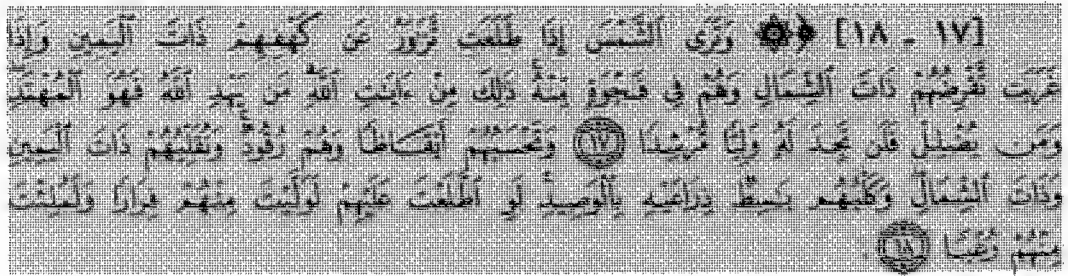 [١٧ ـ ١٨] ﴿۞ وَتَرَى ٱلشَّمْسَ إِذَا طَلَعَت تَّزَٰوَرُ عَن كَهْفِهِمْ ذَاتَ ٱلْيَمِينِ وَإِذَا
غَرَبَت تَّقْرِضُهُمْ ذَاتَ ٱلشِّمَالِ وَهُمْ فِي فَجْوَةٍ مِّنْهُ ذَٰلِكَ مِنْ ءَايَٰتِ ٱللَّهِ مَن يَهْدِ ٱللَّهُ فَهُوَ ٱلْمُهْتَدِ
وَمَن يُضْلِلْ فَلَن تَجِدَ لَهُۥ وَلِيًّا مُّرْشِدًا ﴿١٧﴾ وَتَحْسَبُهُمْ أَيْقَاظًا وَهُمْ رُقُودٌ وَنُقَلِّبُهُمْ ذَاتَ ٱلْيَمِينِ
وَذَاتَ ٱلشِّمَالِ وَكَلْبُهُم بَٰسِطٌ ذِرَاعَيْهِ بِٱلْوَصِيدِ لَوِ ٱطَّلَعْتَ عَلَيْهِمْ لَوَلَّيْتَ مِنْهُمْ فِرَارًا وَلَمُلِئْتَ
مِنْهُمْ رُعْبًا ﴿١٨﴾